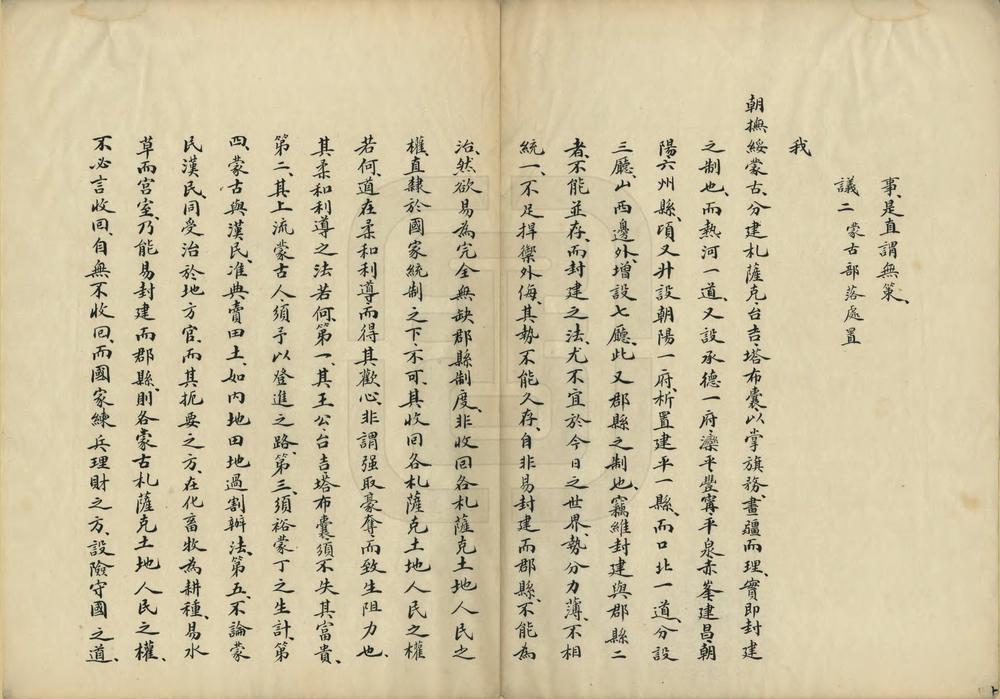 事、是直謂無策、
議二 蒙古部落處置
我
朝撫綏蒙古、分建札薩克、台吉、塔布囊、以掌旗務、畫疆而理、實即封建
之制也、而熱河一道、又設承德一府、灤平豐寧平泉赤峯建昌朝
陽六州縣、頃又升設朝陽一府、析置建平一縣、而口北一道、分設
三廳、山西邊外、增設七廳、此又郡縣之制也、竊維封建與郡縣二
者、不能並存、而封建之法、尤不宜於今日之世界、勢分力薄、不相
統一、不足捍禦外侮、其勢不能久存、自非易封建而郡縣、不能為
治、然欲易為完全無缺郡縣制度、非收回各札薩克土地人民之
權、直隸於國家統制之下、不可、其收回各札薩克土地人民之權
若何、道在柔和利導、而得其歡心、非謂强取豪奪、而致生阻力也、
其柔和利導之法若何、第一、其王公台吉塔布囊、須不失其富貴、
第二、其上流蒙古人、須予以登進之路、第三、須裕蒙丁之生計、第
四、蒙古與漢民、准典賣田土、如內地田地過割辦法、第五、不論蒙
民漢民、同受治於地方官、而其扼要之方、在化畜牧為耕種、易水
草而宮室、乃能易封建而郡縣、則各蒙古札薩克土地人民之權、
不必言收回、自無不收回、而國家練兵理財之方、設險守國之道、